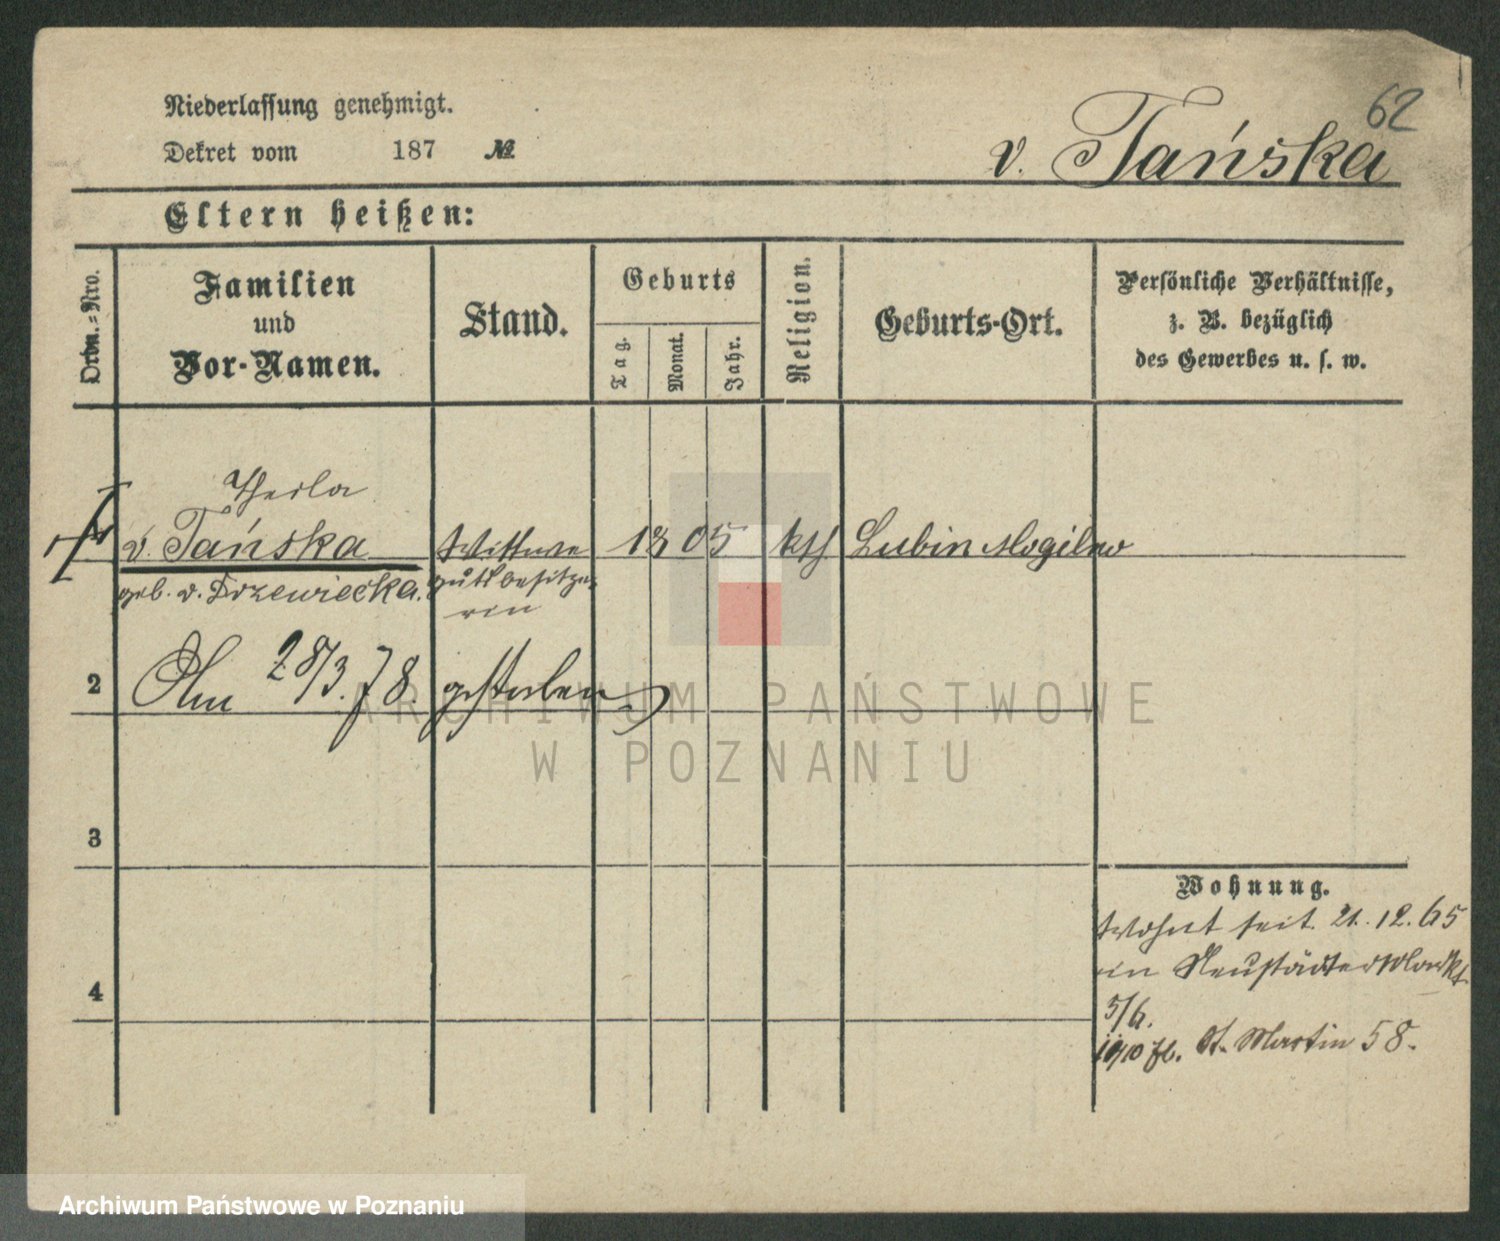 62
Niederlassung genehmigt.
Dekret vom 187 №
v. Tańska
Eltern heißen:
Ordn.-Nro.
Familien
und
Vor-Namen.
Stand.
Geburts
Tag.
Monat.
Jahr.
Religion.
Geburts-Ort.
Persönliche Verhältnisse,
z. B. bezüglich
des Gewerbes u. s. w.
Thecla
v. Tańska Wittwe 18 05 kth Lubin Mogilno
geb. v. Drzewiecka. gutsbesitze-
rin
2 Am 28/3. 78. gestorben
3
4
Wohnung.
Wohnt seit 21. 12. 65
in Neustädter Markt
5/6.
St. Martin 58.
ARCHIWUM PAŃSTWOWE
W POZNANIU
Archiwum Państwowe w Poznaniu